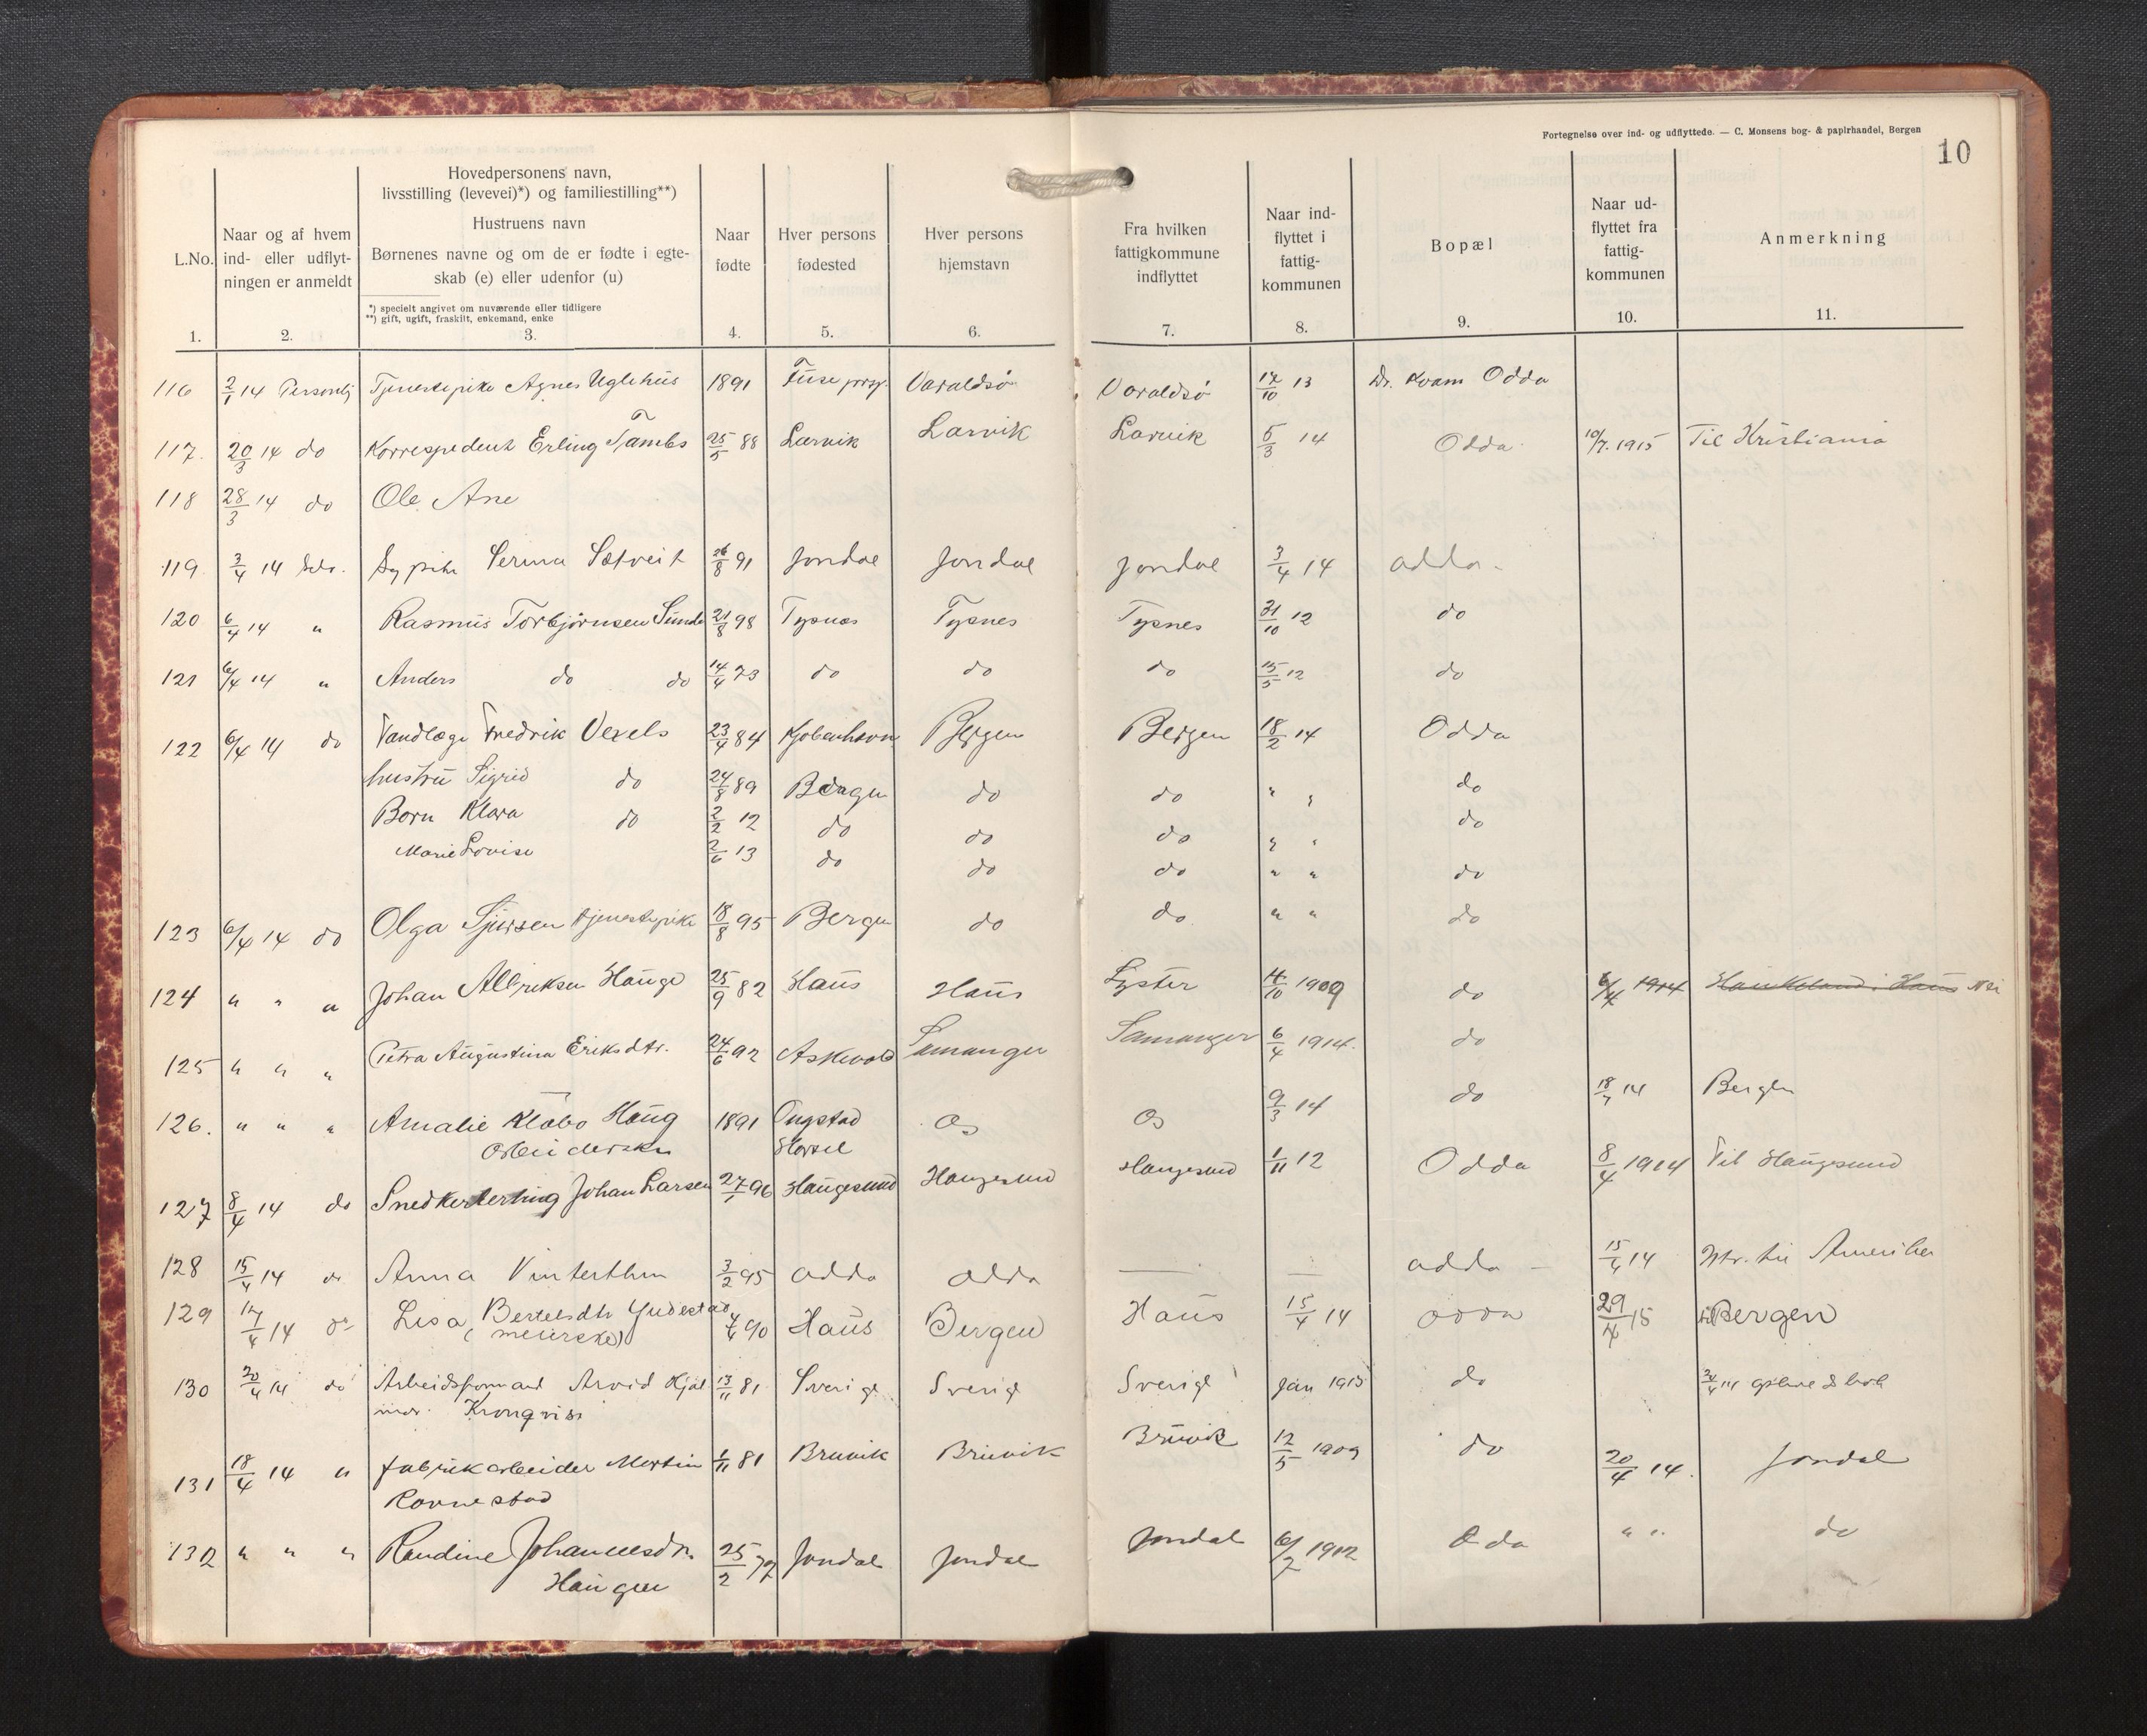 Fortegnelse over ind- og udflyttede. — C. Monsens bog- & papirhandel, Bergen
10
L.No. 1.
Naar og af hvem ind- eller udflytningen er anmeldt 2.
Hovedpersonens navn, livsstilling (levevei)*) og familiestilling**)
Hustruens navn
Børnenes navne og om de er fødte i egteskab (e) eller udenfor (u)
*) specielt angivet om nuværende eller tidligere
**) gift, ugift, fraskilt, enkemand, enke
3.
Naar fødte 4.
Hver persons fødested 5.
Hver persons hjemstavn 6.
Fra hvilken fattigkommune indflyttet 7.
Naar indflyttet i fattigkommunen 8.
Bopæl 9.
Naar udflyttet fra fattigkommunen 10.
Anmerkning 11.
116 2/1 14 Personlj Tjenestepike Agnes Uglehus 1891 Fuse Varaldsø Varaldsø 17/10 13 Dr. Kvam Odda
117. 20/3 14 do Korrespedent Erling Tambs 25/5 88 Larvik Larvik Larvik 5/3 14 Odda 10/7. 1915 Til Kristiania
118 28/3 14 do Ole Ane
119 3/4 14 Sypike Sætveit 26/8 91 Jondal Jondal Jondal 3/4 14 Odda
120 6/4 14 " Rasmus Torbjørnsen Sunde 21/8 98 Tysnæs Tysnes Tysnes 31/10 12 do
121 6/4 14 " Anders do do 14/4 73 do do do 15/5 12 do
122 6/4 14 do Tandlæge Fredrik Vexels 23/4 84 Kjøbenhavn Bergen Bergen 18/2 14 Odda
hustru Sigrid do 24/8 89 Bergen do do " " do
Born Klara do 2/2 12 do do do " " do
Marie Lovise 2/6 13 do do do " " do
123 6/4 14 do Olga Sjursen tjenestepike 18/8 95 Bergen do do " " do
124 " " " Johan Albriksen Hauge 25/9 82 Haus Haus Lyster 4/10 1909 do 6/4 1914 Haukeland i Haus
125 " " " Petra Augustina Eriksdtr. 24/6 92 Askvold Samanger Samanger 6/4 1914. do
126. " " " Amalie Klæbo Haug 1891 Os Os 9/3 14 do 18/7 14 Bergen
127 8/4 14 do Snedkerlerling Johan Larsen 27/1 96 Haugesund Haugesund Haugesund 1/11 12 Odda 8/4 1914 Til Haugesund
128 15/4 14 do Anna Vinterthun 3/2 95 Odda Odda — — Odda 15/4 14 til Amerika
129 17/4 14 do Lisa Bertelsdtr
(meierske) 4/4 90 Haus Bergen Haus 15/4 14 Odda 29/4 15 til Bergen
130 20/4 14 do Arbeidsformand Arvid
Kronqvist 13/11 81 Sverige Sverige Sverige Jan 1913 do
131 18/4 14 " fabrikarbeider Martin
Ravnestad 1/11 81 Bruvik Bruvik Bruvik 12/5 1909 do 20/4 14. Jondal
132 " " " Randine Johannesdtr.
Haugen 25/2 72 Jondal Jondal Jondal 6/2 1912 Odda " " do